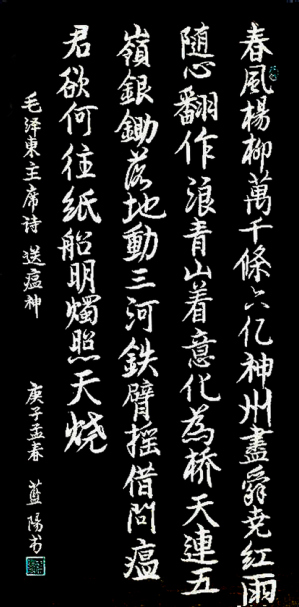 春風楊柳萬千條六亿神州盡舜尭紅雨
隨心翻作浪青山着意化為桥天連五
嶺銀鋤落地動三河鉄臂摇借問瘟
君欲何往紙船明燭照天烧
毛泽東主席诗 送瘟神 庚子孟春 蓝陽书